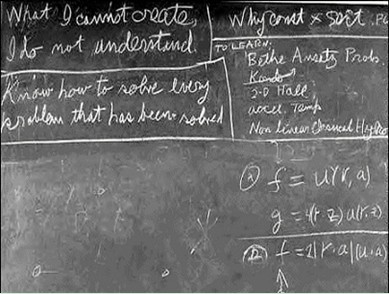 What I cannot create,
I do not understand.
Know how to solve every
problem that has been solved
Why const × sort . Po
TO LEARN:
Bethe Ansatz Prob.
Kondo
2-D Hall
accel. Temp
Non Linear Classical Hydro
f = u(r, a)
g = 4(r·z) u(r, z)
f = 2|r·a|(u·a)